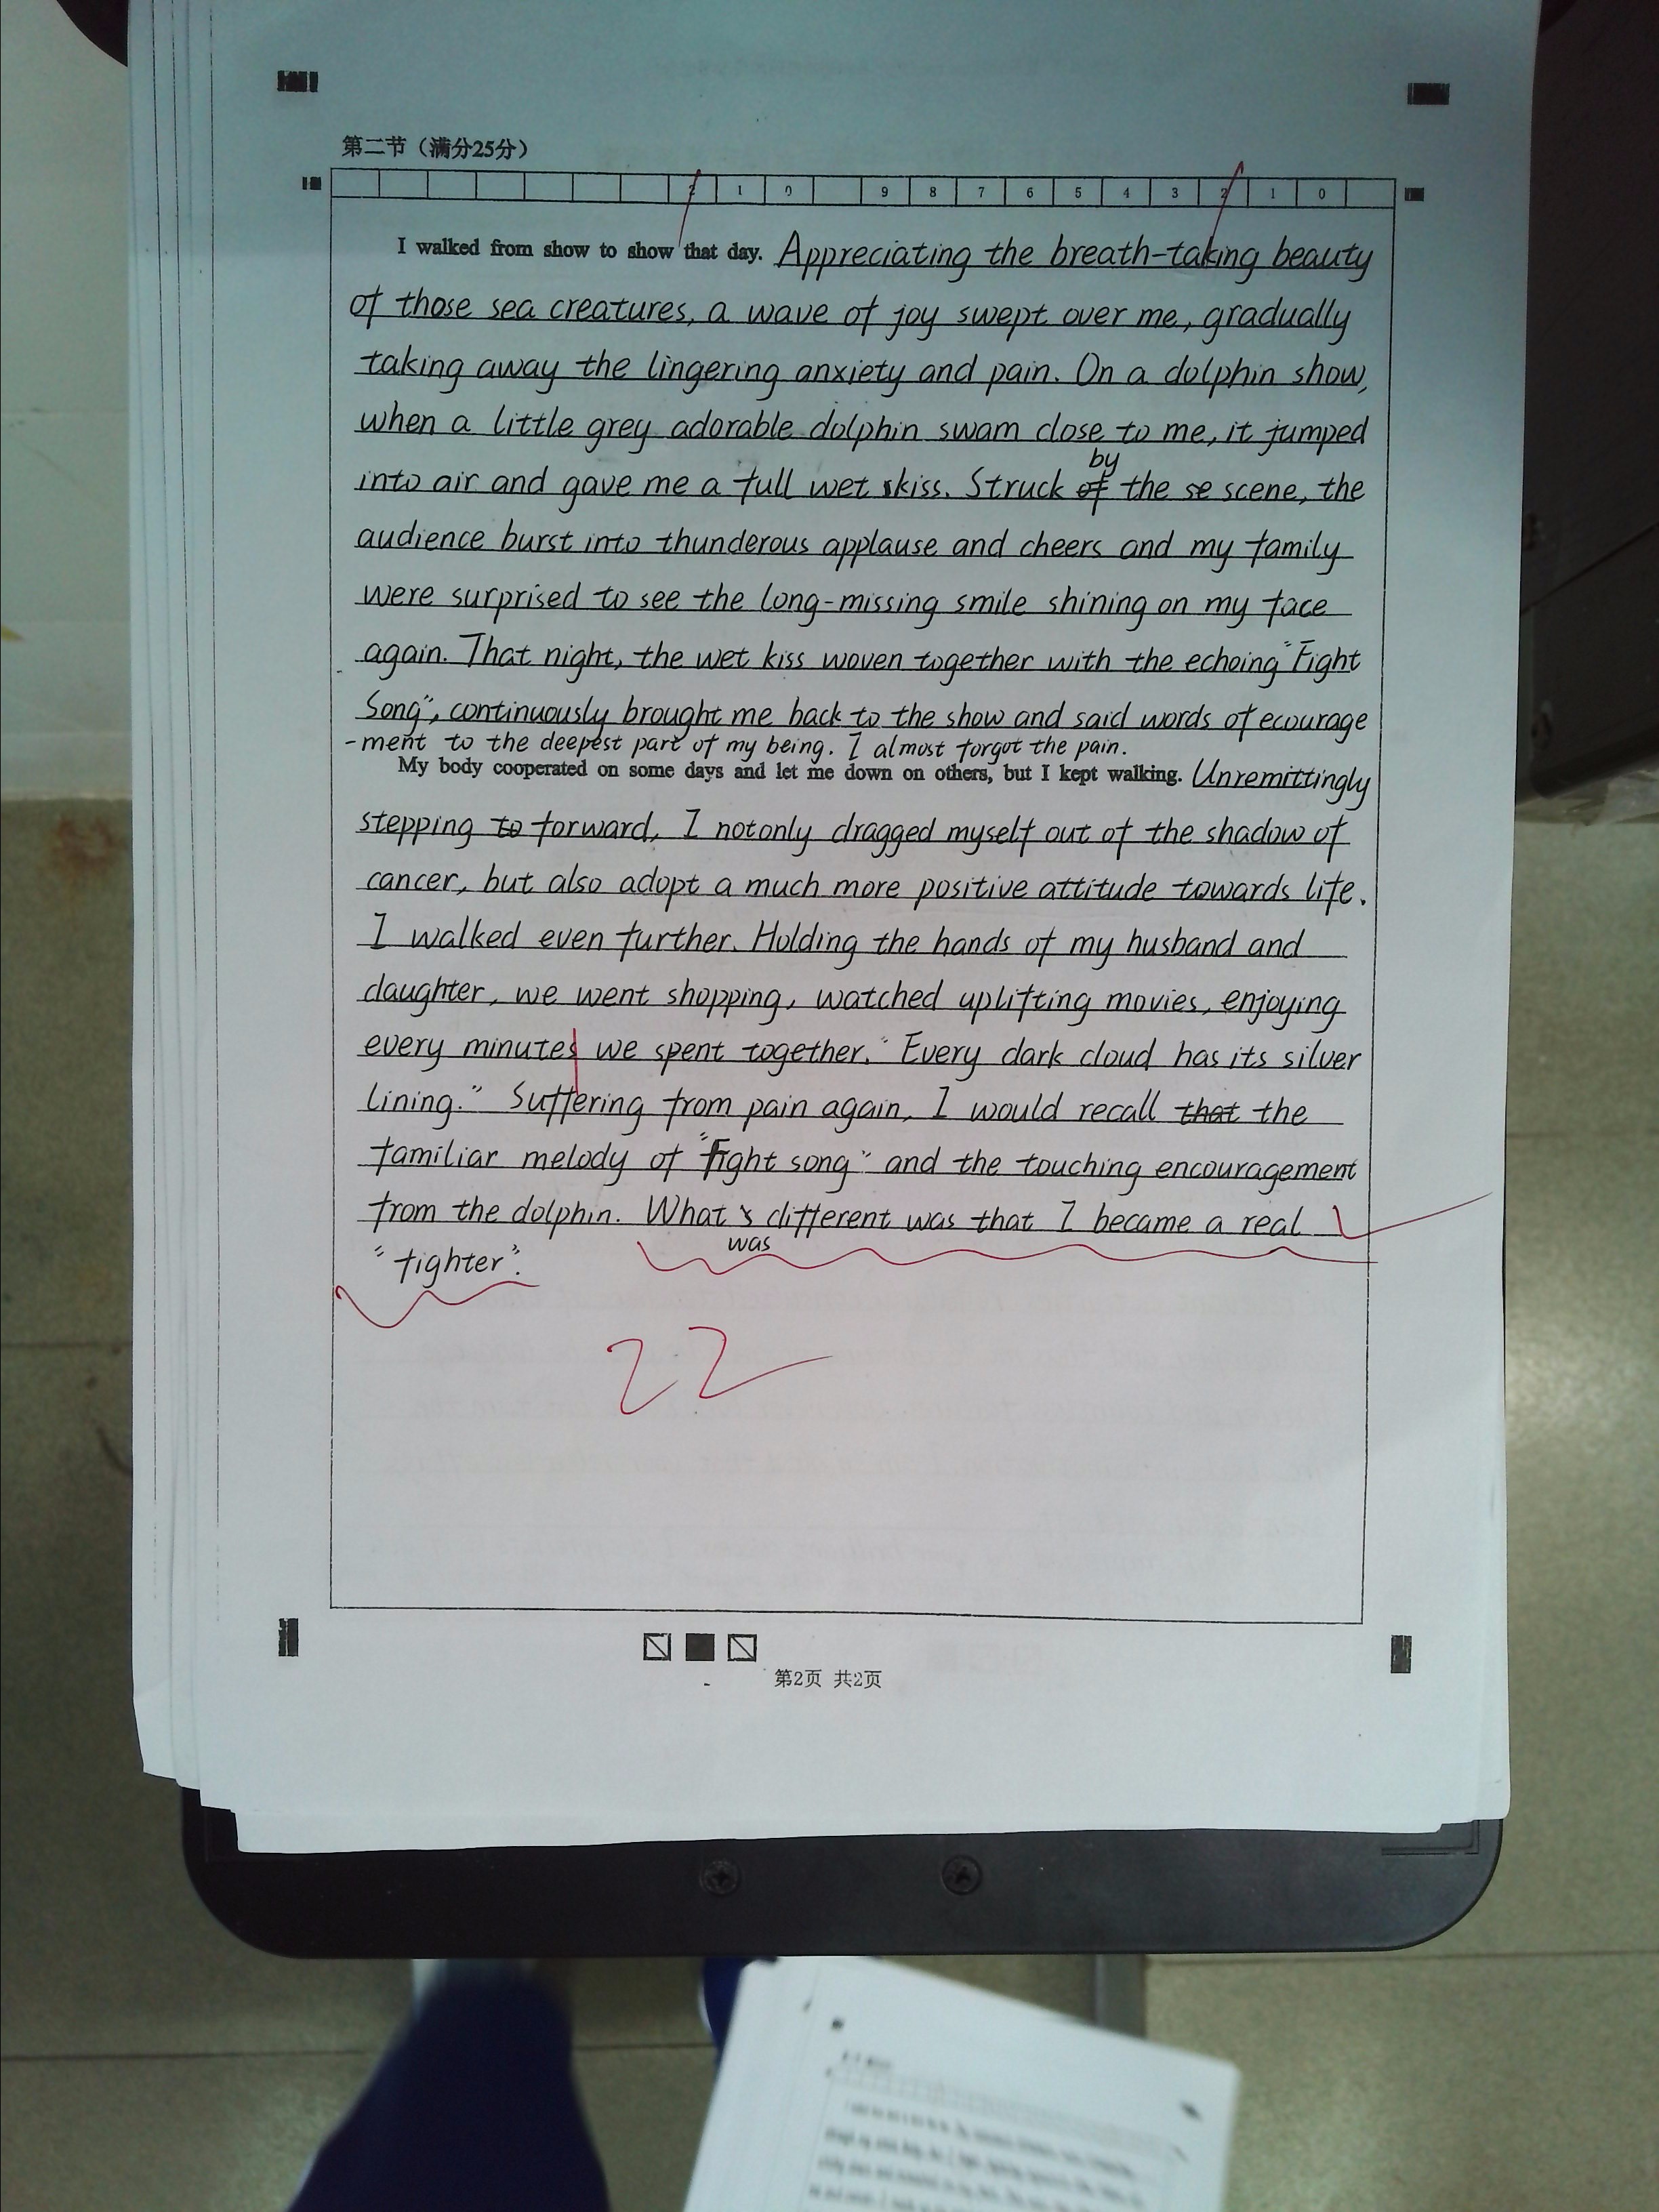 第二节（满分25分）
2 1 0 9 8 7 6 5 4 3 2 1 0
I walked from show to show that day. Appreciating the breath-taking beauty
of those sea creatures, a wave of joy swept over me, gradually
taking away the lingering anxiety and pain. On a dolphin show,
when a little grey adorable dolphin swam close to me, it jumped
by
into air and gave me a full wet kiss. Struck of the se scene, the
audience burst into thunderous applause and cheers and my family
were surprised to see the long-missing smile shining on my face
again. That night, the wet kiss woven together with the echoing "Fight
Song", continuously brought me back to the show and said words of ecourage
-ment to the deepest part of my being. I almost forgot the pain.
My body cooperated on some days and let me down on others, but I kept walking. Unremittingly
stepping to forward, I not only dragged myself out of the shadow of
cancer, but also adopt a much more positive attitude towards life.
I walked even further. Holding the hands of my husband and
daughter, we went shopping, watched uplifting movies, enjoying
every minutes we spent together. "Every dark cloud has its silver
lining." Suffering from pain again, I would recall that the
familiar melody of "Fight song" and the touching encouragement
from the dolphin. What s different was that I became a real
was
"fighter".
22
第2页 共2页